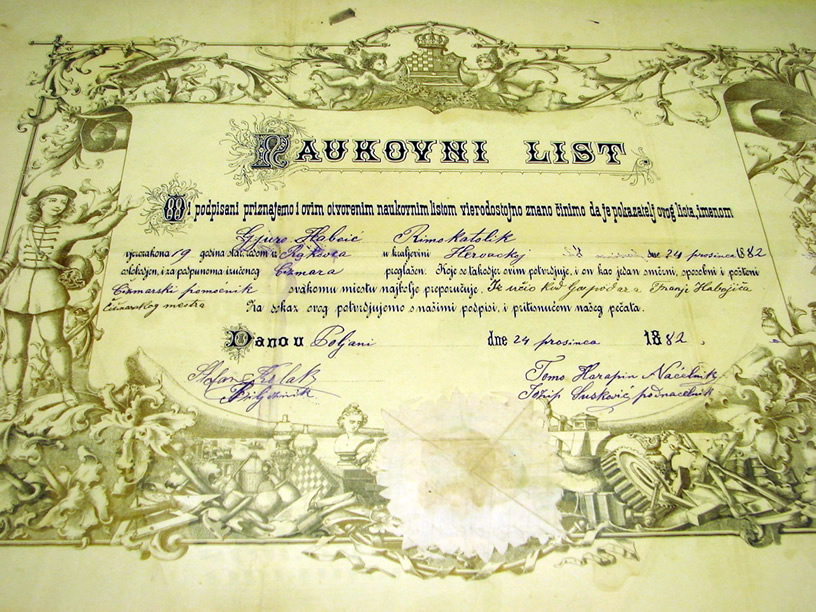 NAUKOVNI LIST
Mi podpisani priznajemo i ovim otvorenim naukovnim listom vierodostojno znano činimo da je pokazatelj ovog lista, imenom
Gjuro Habeić Rimokatolik
vjerozakona 19 godina star, rodom iz u kraljevini Hervackoj dne 24 prosinca 1882
oslobodjen, i za podpunoma izučenog Čizmara proglašen. Koje se takodjer ovim potvrdjuje, i on kao jedan smierni, sposobni i pošteni
Čizmarski pomoćnik svakomu miestu najbolje preporučuje. Je učio kod Gospodara Franje Habajića
Čizmarskog mestra Na dokaz ovog potvrdjujemo s našimi podpisi, i pritisnućem našeg pečata.
Dano u Poljani dne 24 prosinca 1882.
Stefan Kolak Tomo Harapin Načelnik
Josip Susković podnačelnik